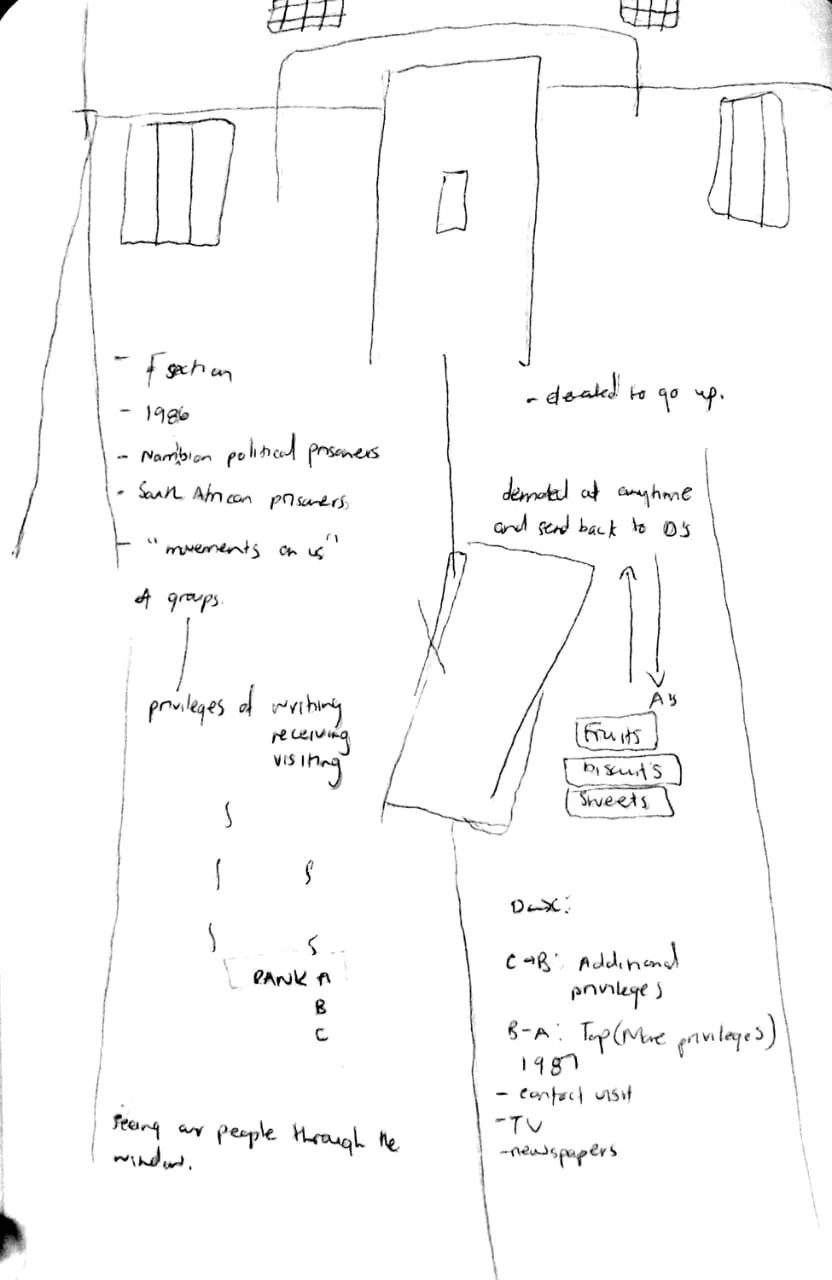 - F section
- 1986
- Namibian political prisoners
- South African prisoners
- "movements on us"
A groups.
privileges of writing
receiving
visiting
RANK A
B
C
seeing our people through the
window.
- elevated to go up.
demoted at anytime
and send back to D's
A's
Fruits
biscuits
Sweets
D→C:
C→B: Additional
privileges
B-A: Top (More privileges)
1987
- contact visit
- TV
- newspapers